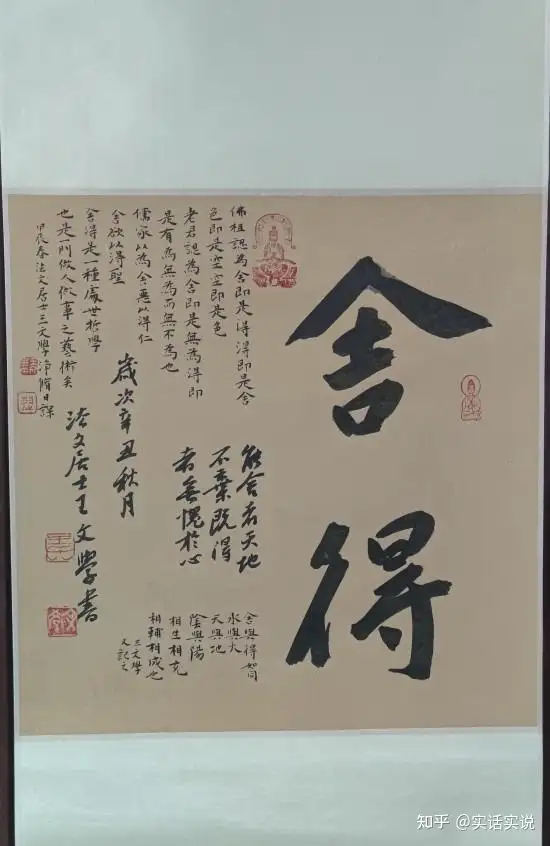 舍得
佛祖認為舍即是得得即是舍
色即是空空即是色
老君認為舍即是無為得即
是有為無為而無不為也
儒家以為舍惡以得仁
舍欲以得聖
舍得是一種處世哲學
也是一門做人做事之藝術矣
甲辰春法文居士王文學沐僃日課
能舍者天地
不棄既得
者無愧於心
歲次辛丑秋月
法文居士王文學書
舍與得如同
水與火
天與地
陰與陽
相生相克
相輔相成也
王文學
又記之
知乎 @实话实说